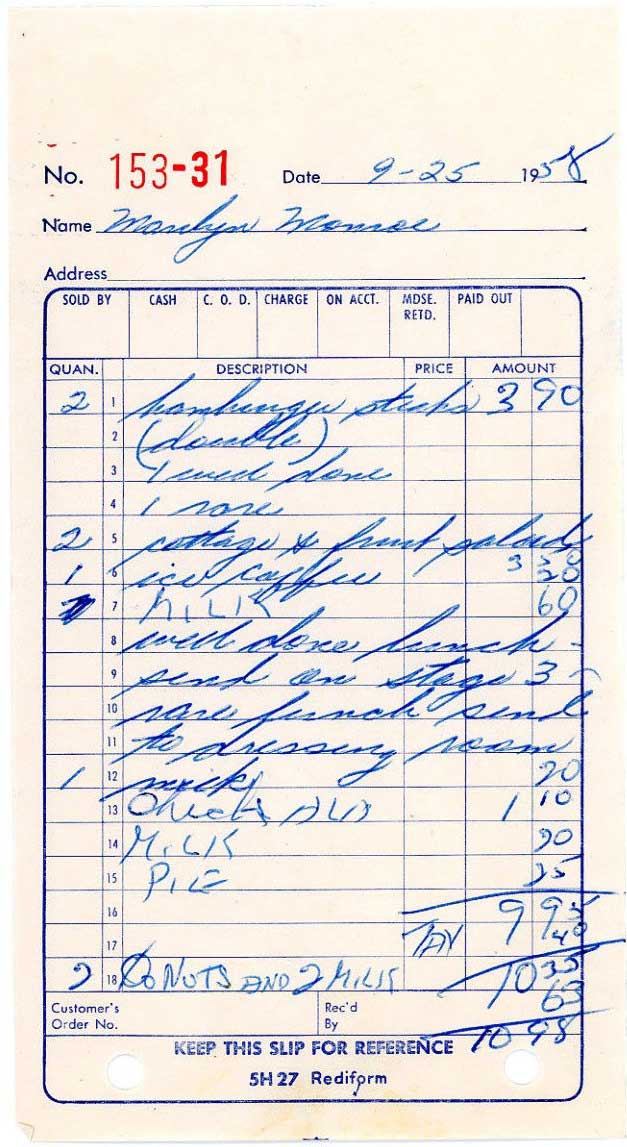 No. 153-31 Date 9-25 1958
Name Marilyn Monroe
Address
SOLD BY CASH C. O. D. CHARGE ON ACCT. MDSE. RETD. PAID OUT
QUAN. DESCRIPTION PRICE AMOUNT
2 1 hamburger steaks 3 90
2 (double)
3 1 well done
4 1 rare
2 5 cottage & fruit salads
1 6 ice coffee 20
7 MILK 60
8 well done lunch -
9 send on stage 3 -
10 rare lunch send
11 to dressing room
1 12 milk 20
13 1 10
14 MILK 20
15 PIE 25
16 9 95
17 TAX 40
2 18 DONUTS AND 2 MILK 10 35
63
10 98
Customer's Order No. Rec'd By
KEEP THIS SLIP FOR REFERENCE
5H27 Rediform